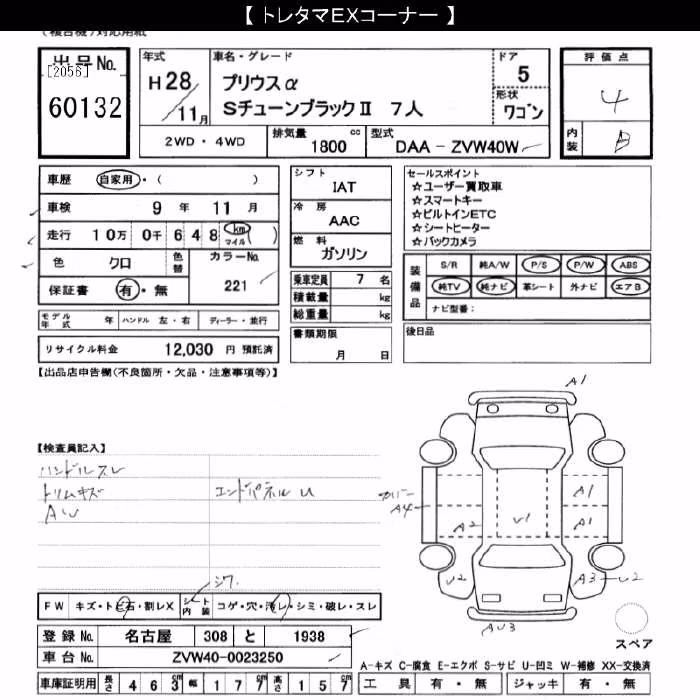 【 トレタマEXコーナー 】
(複合機)対応用紙
出品No.
[2056]
60132
年式
H28/11月
車名・グレード
プリウスα
Sチューンブラック II 7人
ドア
5
形状
ワゴン
評価点
4
内装
B
2WD・4WD
排気量 1800 cc
型式 DAA-ZVW40W
車歴 自家用・( )
車検 9年 11月
走行 10万 0千 648 km マイル ( )
色 クロ 色替 カラーNo. 221
保証書 有・無
モデル年式 年 ハンドル 左・右 ディーラー・並行
リサイクル料金 12,030 円 預託済
シフト
IAT
冷房
AAC
燃料
ガソリン
乗車定員 7 名
積載量 kg
総重量 kg
書類期限
月 日
セールスポイント
☆ユーザー買取車
☆スマートキー
☆ビルトインETC
☆シートヒーター
☆バックカメラ
装備品
S/R 純A/W P/S P/W ABS
純TV 純ナビ 革シート 外ナビ エアB
ナビ型番:
後日品
【出品店申告欄(不良箇所・欠品・注意事項等)】
【検査員記入】
ハンドルスレ
トリムキズ
エンドパネル U
AW
A1
カバー
A4
A2
U1
A1
A1
U2
A3
U2
AU3
スペア
シワ
FW キズ・トビ石・割レX シート内装 コゲ・穴・汚レ・シミ・破レ・スレ
登録No. 名古屋 308 と 1938
車台No. ZVW40-0023250
車庫証明用 長さ 463cm 幅 177cm 高さ 157cm
A-キズ C-腐食 E-エクボ S-サビ U-凹ミ W-補修 XX-交換済
工具 有・無 ジャッキ 有・無